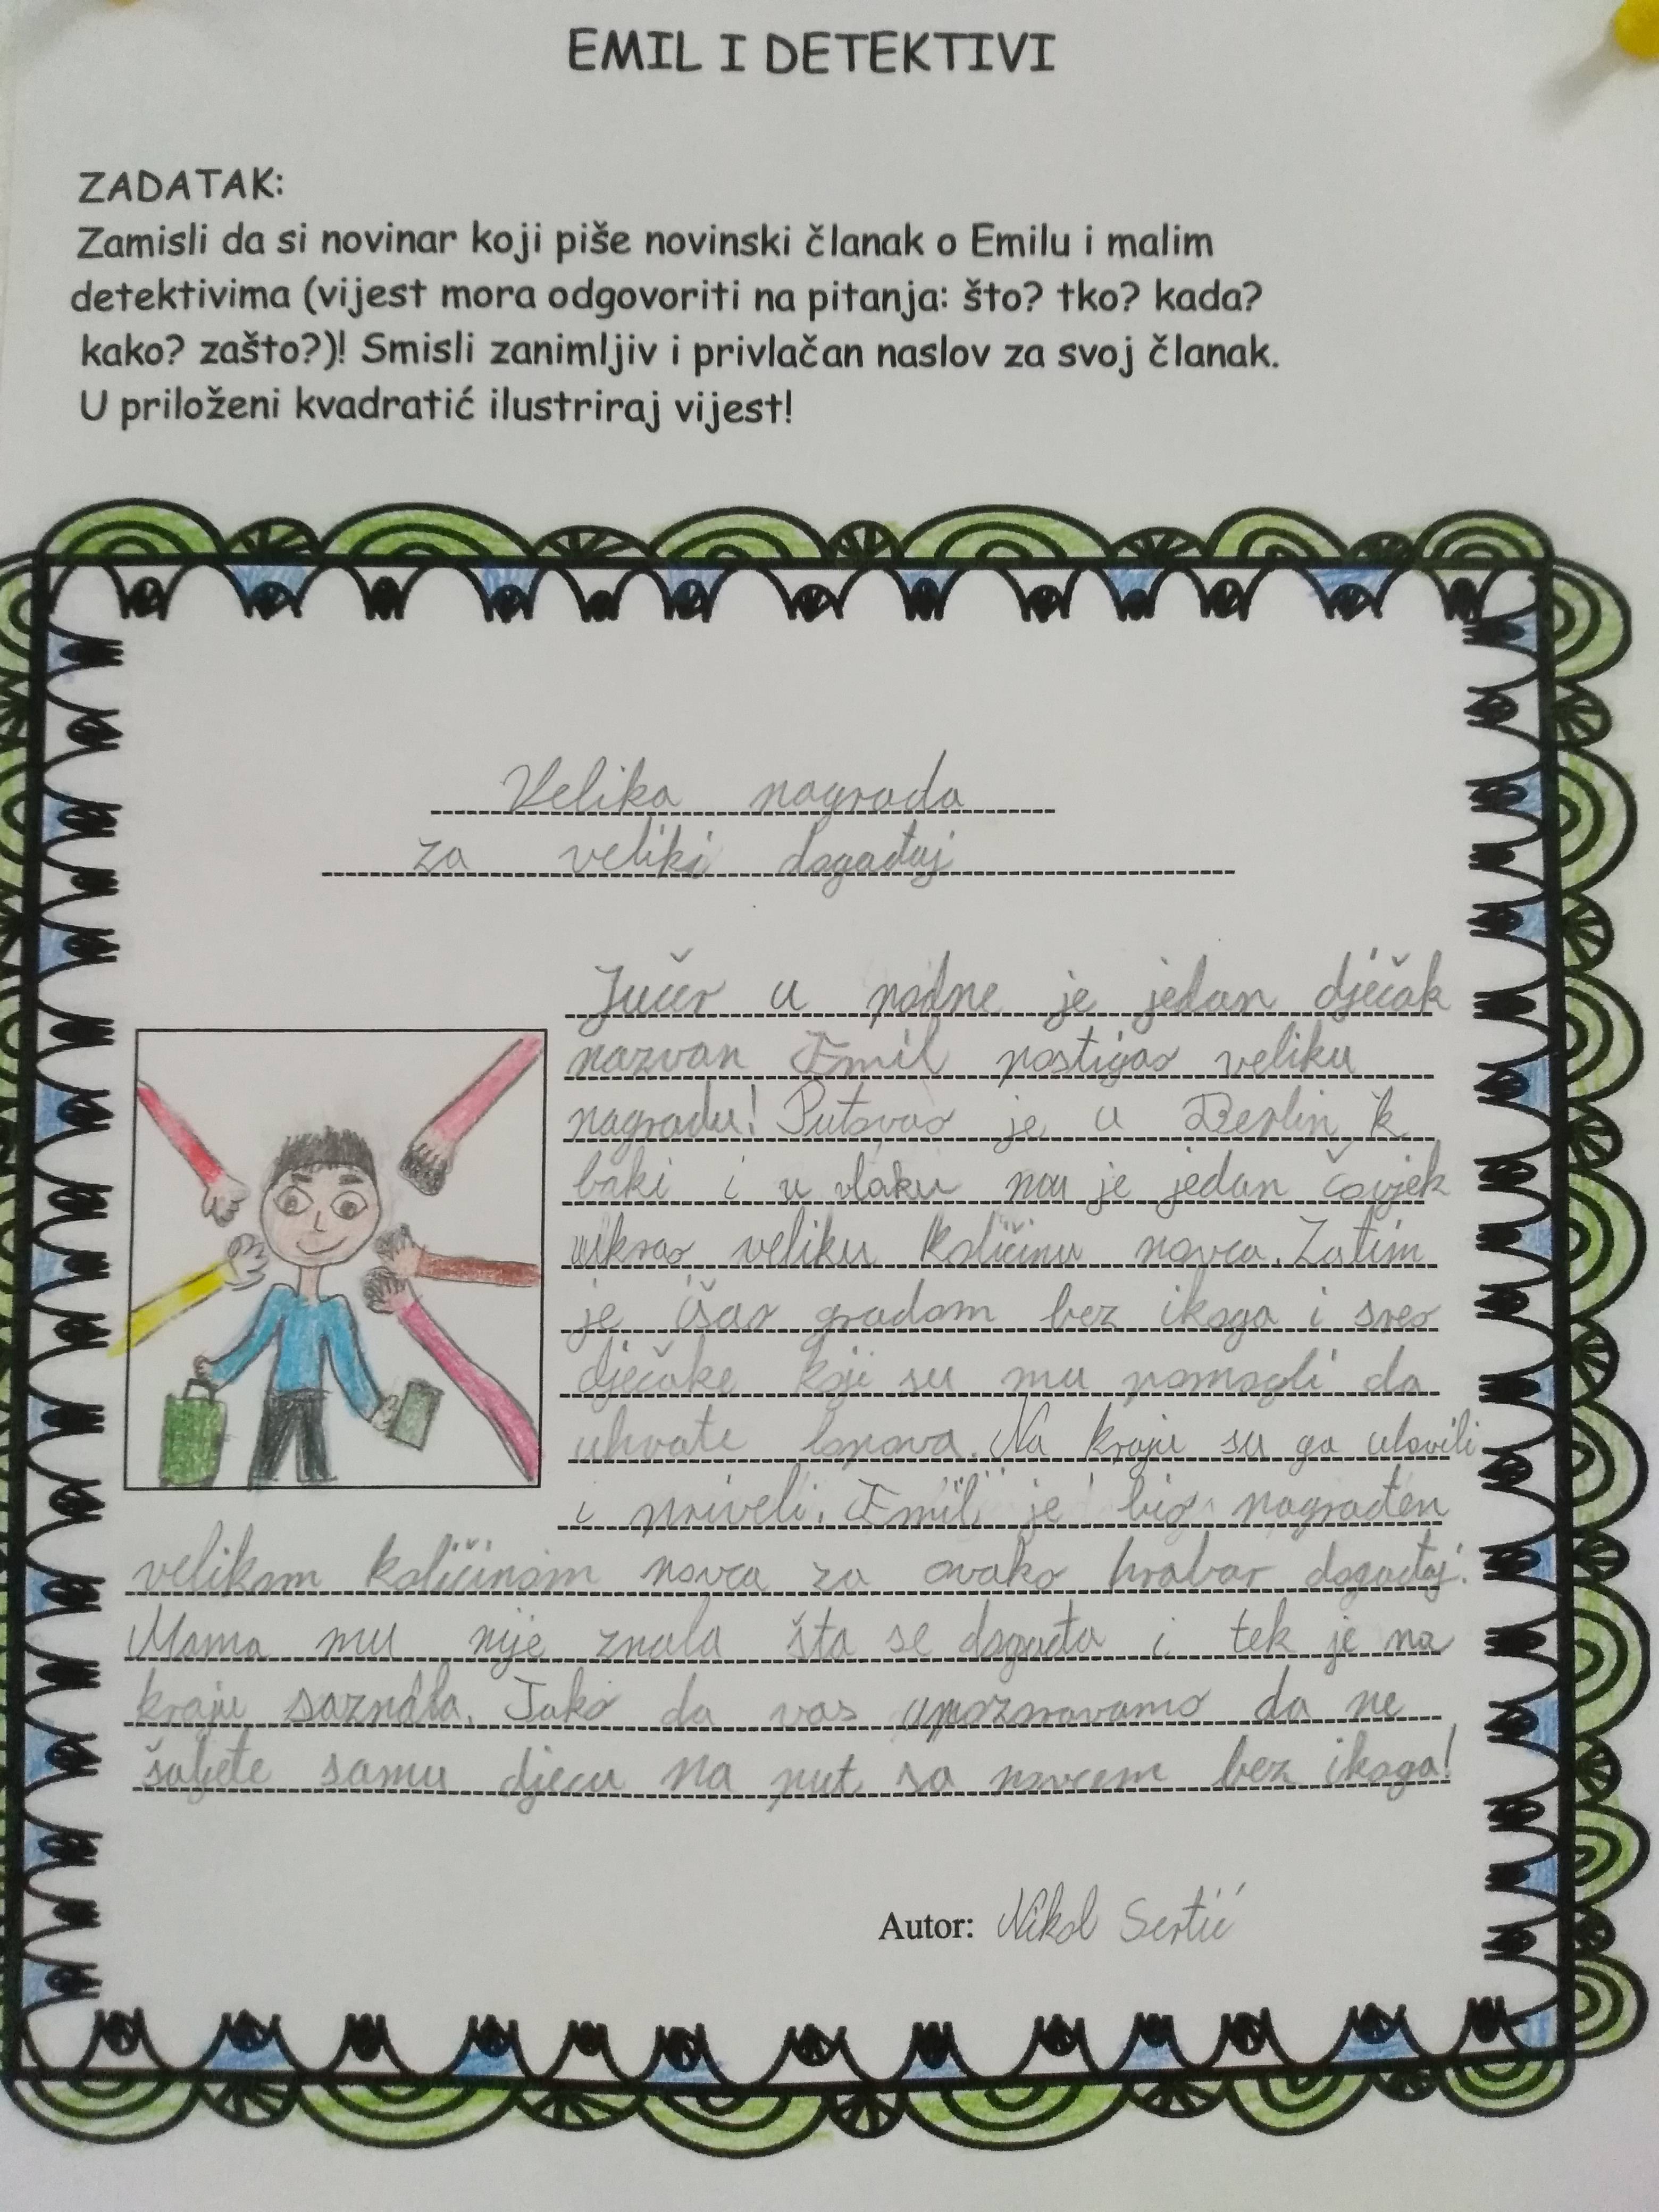 EMIL I DETEKTIVI
ZADATAK:
Zamisli da si novinar koji piše novinski članak o Emilu i malim
detektivima (vijest mora odgovoriti na pitanja: što? tko? kada?
kako? zašto?)! Smisli zanimljiv i privlačan naslov za svoj članak.
U priloženi kvadratić ilustriraj vijest!
Velika nagrada
za veliki događaj
Jučer u podne je jedan dječak
nazvan Emil postigao veliku
nagradu! Putovao je u Berlin k
baki i u vlaku mu je jedan čovjek
ukrao veliku količinu novca. Zatim
je išao gradom bez ikoga i sreo
dječake koji su mu pomogli da
uhvate lopova. Na kraju su ga ulovili
i priveli. Emil je bio nagrađen
velikom količinom novca za ovako hrabar događaj.
Mama mu nije znala šta se događa i tek je na
kraju saznala. Tako da vas upoznavamo da ne
šaljete samu djecu na put sa novcem bez ikoga!
Autor: Nikol Sertić